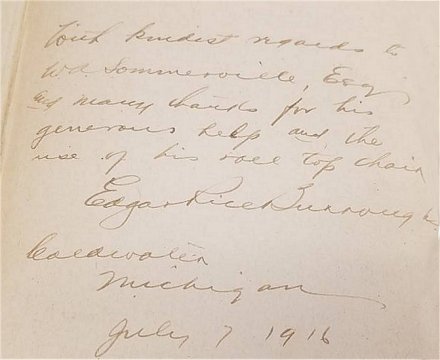 With kindest regards to
Wd Sommerville, Esq
and many thanks for his
generous help and the
use of his roll top chair
Edgar Rice Burroughs
Coldwater
Michigan
July 7 1916